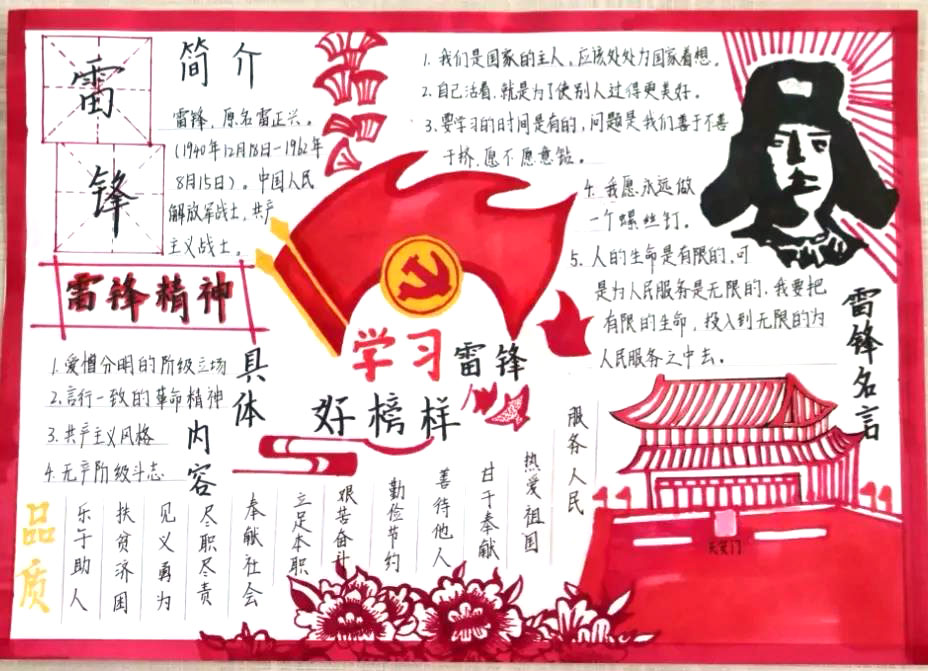 雷锋
简介
雷锋，原名雷正兴。
（1940年12月18日-1962年
8月15日）。中国人民
解放军战士，共产
主义战士。
1. 我们是国家的主人，应该处处为国家着想。
2. 自己活着，就是为了使别人过得更美好。
3. 要学习的时间是有的，问题是我们善于不善
于挤，愿不愿意钻。
4. 我愿永远做
一个螺丝钉。
5. 人的生命是有限的，可
是为人民服务是无限的，我要把
有限的生命，投入到无限的为
人民服务之中去。
雷锋名言
雷锋精神
具体内容
1. 爱憎分明的阶级立场
2. 言行一致的革命精神
3. 共产主义风格
4. 无产阶级斗志
学习雷锋
好榜样
品质
乐于助人
扶贫济困
见义勇为
尽职尽责
奉献社会
立足本职
艰苦奋斗
勤俭节约
善待他人
甘于奉献
热爱祖国
服务人民
天安门